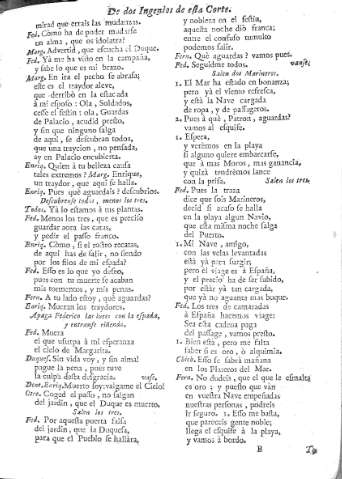 De dos Ingenios de esta Corte.
mirad que erráis las mudanzas.
Fed. Cómo ha de poder mudarse
un alma, que os idolatra?
Marg. Advertid, que escucha el Duque.
Fed. Yà me ha visto en la campaña,
y sabe lo que es mi brazo.
Marg. En ira el pecho se abrasa;
este es el traydor aleve,
que derribò en la estacada
à mi esposo: Ola, Soldados,
cesse el festin: ola, Guardas
de Palacio, acudid presto,
y sin que ninguno salga
de aquì, se descubran todos,
que una traycion, no pensada,
ay en Palacio encubierta.
Enriq. Quien à tu belleza causa
tales extremos? Marg. Enrique,
un traydor, que aquì se halla.
Enriq. Pues què aguardais? descubríos.
Descubrense todos, menos los tres.
Todos. Yà lo estamos à tus plantas.
Fed. Menos los tres, que es preciso
guardar aora las caras,
y pedir el passo franco.
Enriq. Còmo, si el rostro recatas,
de aquì has de salir, no siendo
por los filos de mi espada?
Fed. Esso es lo que yo deseo,
pues con tu muerte se acaban
mis tormentos, y mis penas.
Fern. A tu lado estoy, què aguardas?
Enriq. Mueran los traydores.
Apaga Federico las luces con la espada,
y entranse riñendo.
Fed. Muera
el que usurpa à mi esperanza
el Cielo de Margarita.
Duques. Sin vida voy, y sin alma!
pague la pena, pues tuve
la culpa desta desgracia. vase.
Dent. Enriq. Muerto soy: valgame el Cielo!
Otro. Coged el passo, no salgan
del jardin, que el Duque es muerto.
Salen los tres.
Fed. Por aquesta puerta falsa
del jardin, que la Duquesa,
para que el Pueblo se hallàra,
y nobleza en el festin,
aquesta noche diò franca;
entre el confuso tumulto
podemos salir.
Fern. Què aguardas? vamos pues.
Fed. Seguidme todos. vanse.
Salen dos Marineros.
1. El Mar està en bonanza;
pero yà el viento refresca,
y està la Nave cargada
de ropa, y de passageros.
2. Pues à què, Patron, aguardas?
vamos al esquife.
1. Espera,
y verèmos en la playa
si alguno quiere embarcarse,
que à mas Moros, mas ganancia,
y quizà tendrèmos lance
con la prisa. Salen los tres.
Fed. Pues la traza
dice que sois Marineros,
decid si acaso se halla
en la playa algun Navio,
que esta misma noche salga
del Puerto.
1. Mi Nave, amigo,
con las velas levantadas
està yà para surgir;
pero el viage es à España,
y el precio ha de ser subido,
por estàr yà tan cargada,
que yà no aguanta mas buque.
Fed. Los tres de camaradas
à España hacemos viage:
Sea esta cadena paga
del passage, vamos presto.
1. Bien està, pero me falta
saber si es oro, ò alquimia.
Chich. Esso se sabrà mañana
en los Plateros del Mar.
Fern. No dudeis, que el que la esmalta
es oro; y puesto que vàn
en vuestra Nave empeñadas
nuestras personas, podreis
ir seguro. 1. Esso me basta,
que pareceis gente noble;
llega el esquife à la playa,
y vamos à bordo.
B